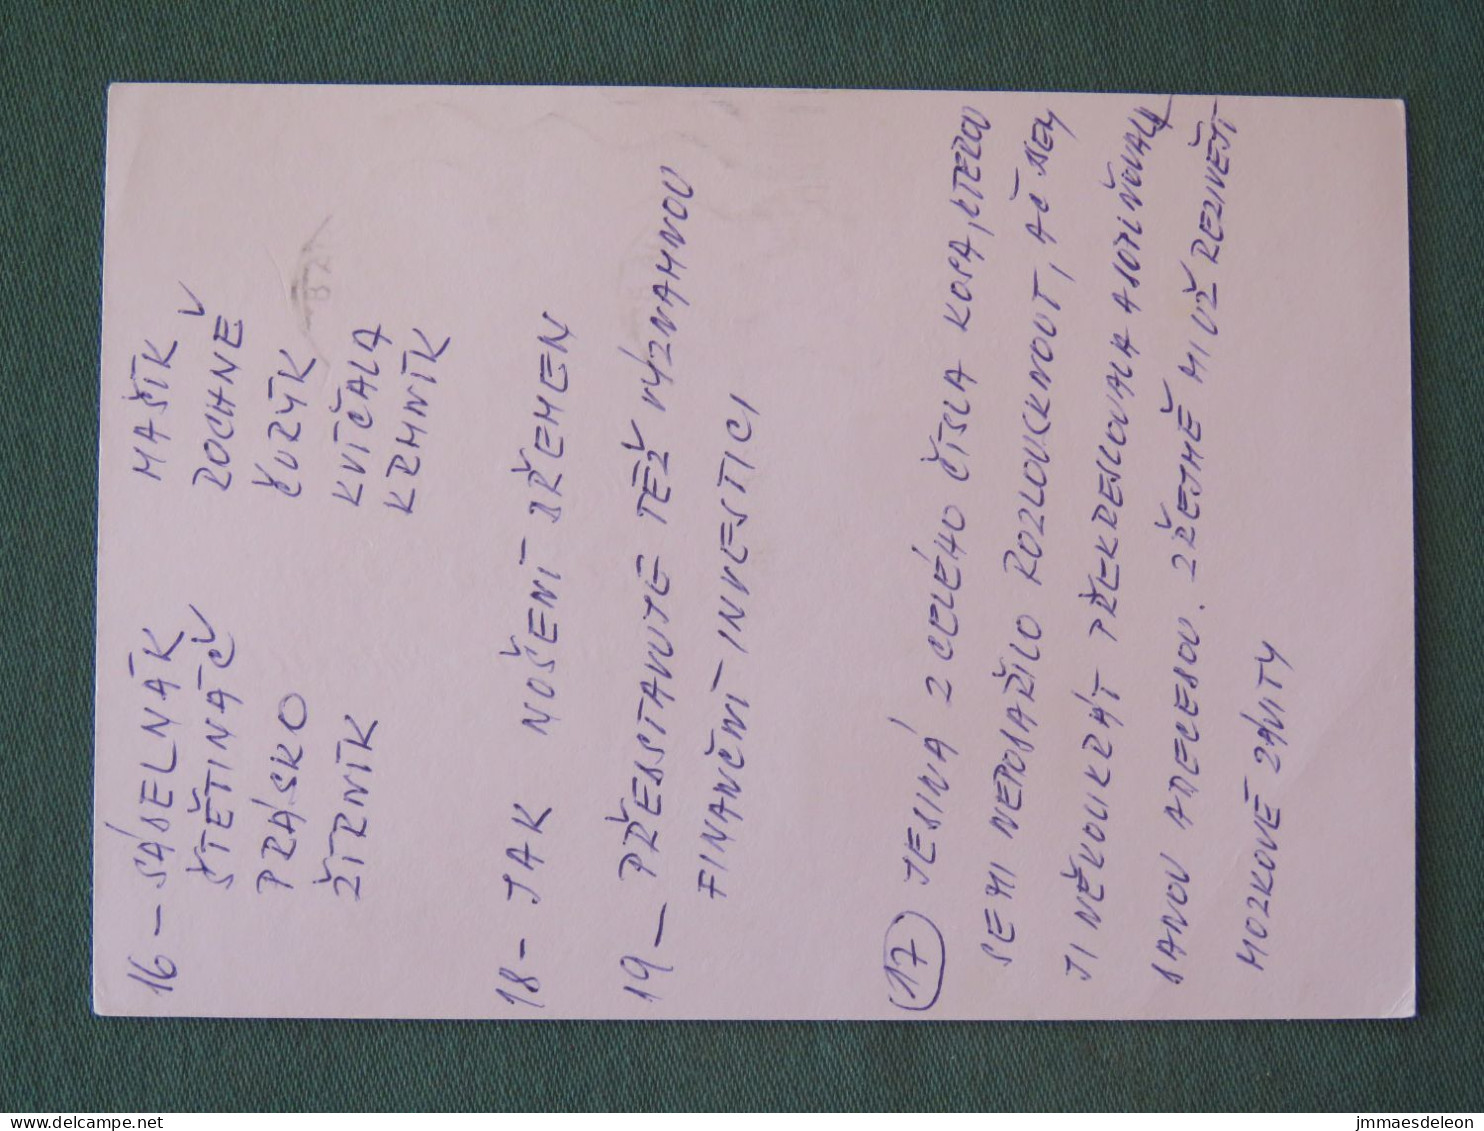 16 – SÁDELNÁK MAŠÍK
ŠTĚTINÁČ ROCHNĚ
PRÁSKO ČURÝK
ŽÍRNÍK KVÍČALA
KRMNÍK
18 – JAK NOŠENÍ DŘEMEN
19 – PŘEDSTAVUJE TÉŽ VÝZNAMNOU
FINANČNÍ INVESTICI
17 JEDINÁ Z CELÉHO ČÍSLA KOPA, KTEROU
SE MI NEPODAŘILO ROZLOUSKNOUT, AČ JSEM
JI NĚKOLIKRÁT PŘEKRESLOVALA A
ZŘEJMĚ MI UŽ REZIVĚJÍ
MOZKOVÉ ZÁVITY
jmmaesdeleon